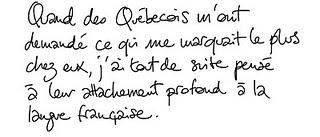 Quand des Québecois m'ont
demandé ce qui me marquait le plus
chez eux, j'ai tout de suite pensé
à leur attachement profond à la
langue française.